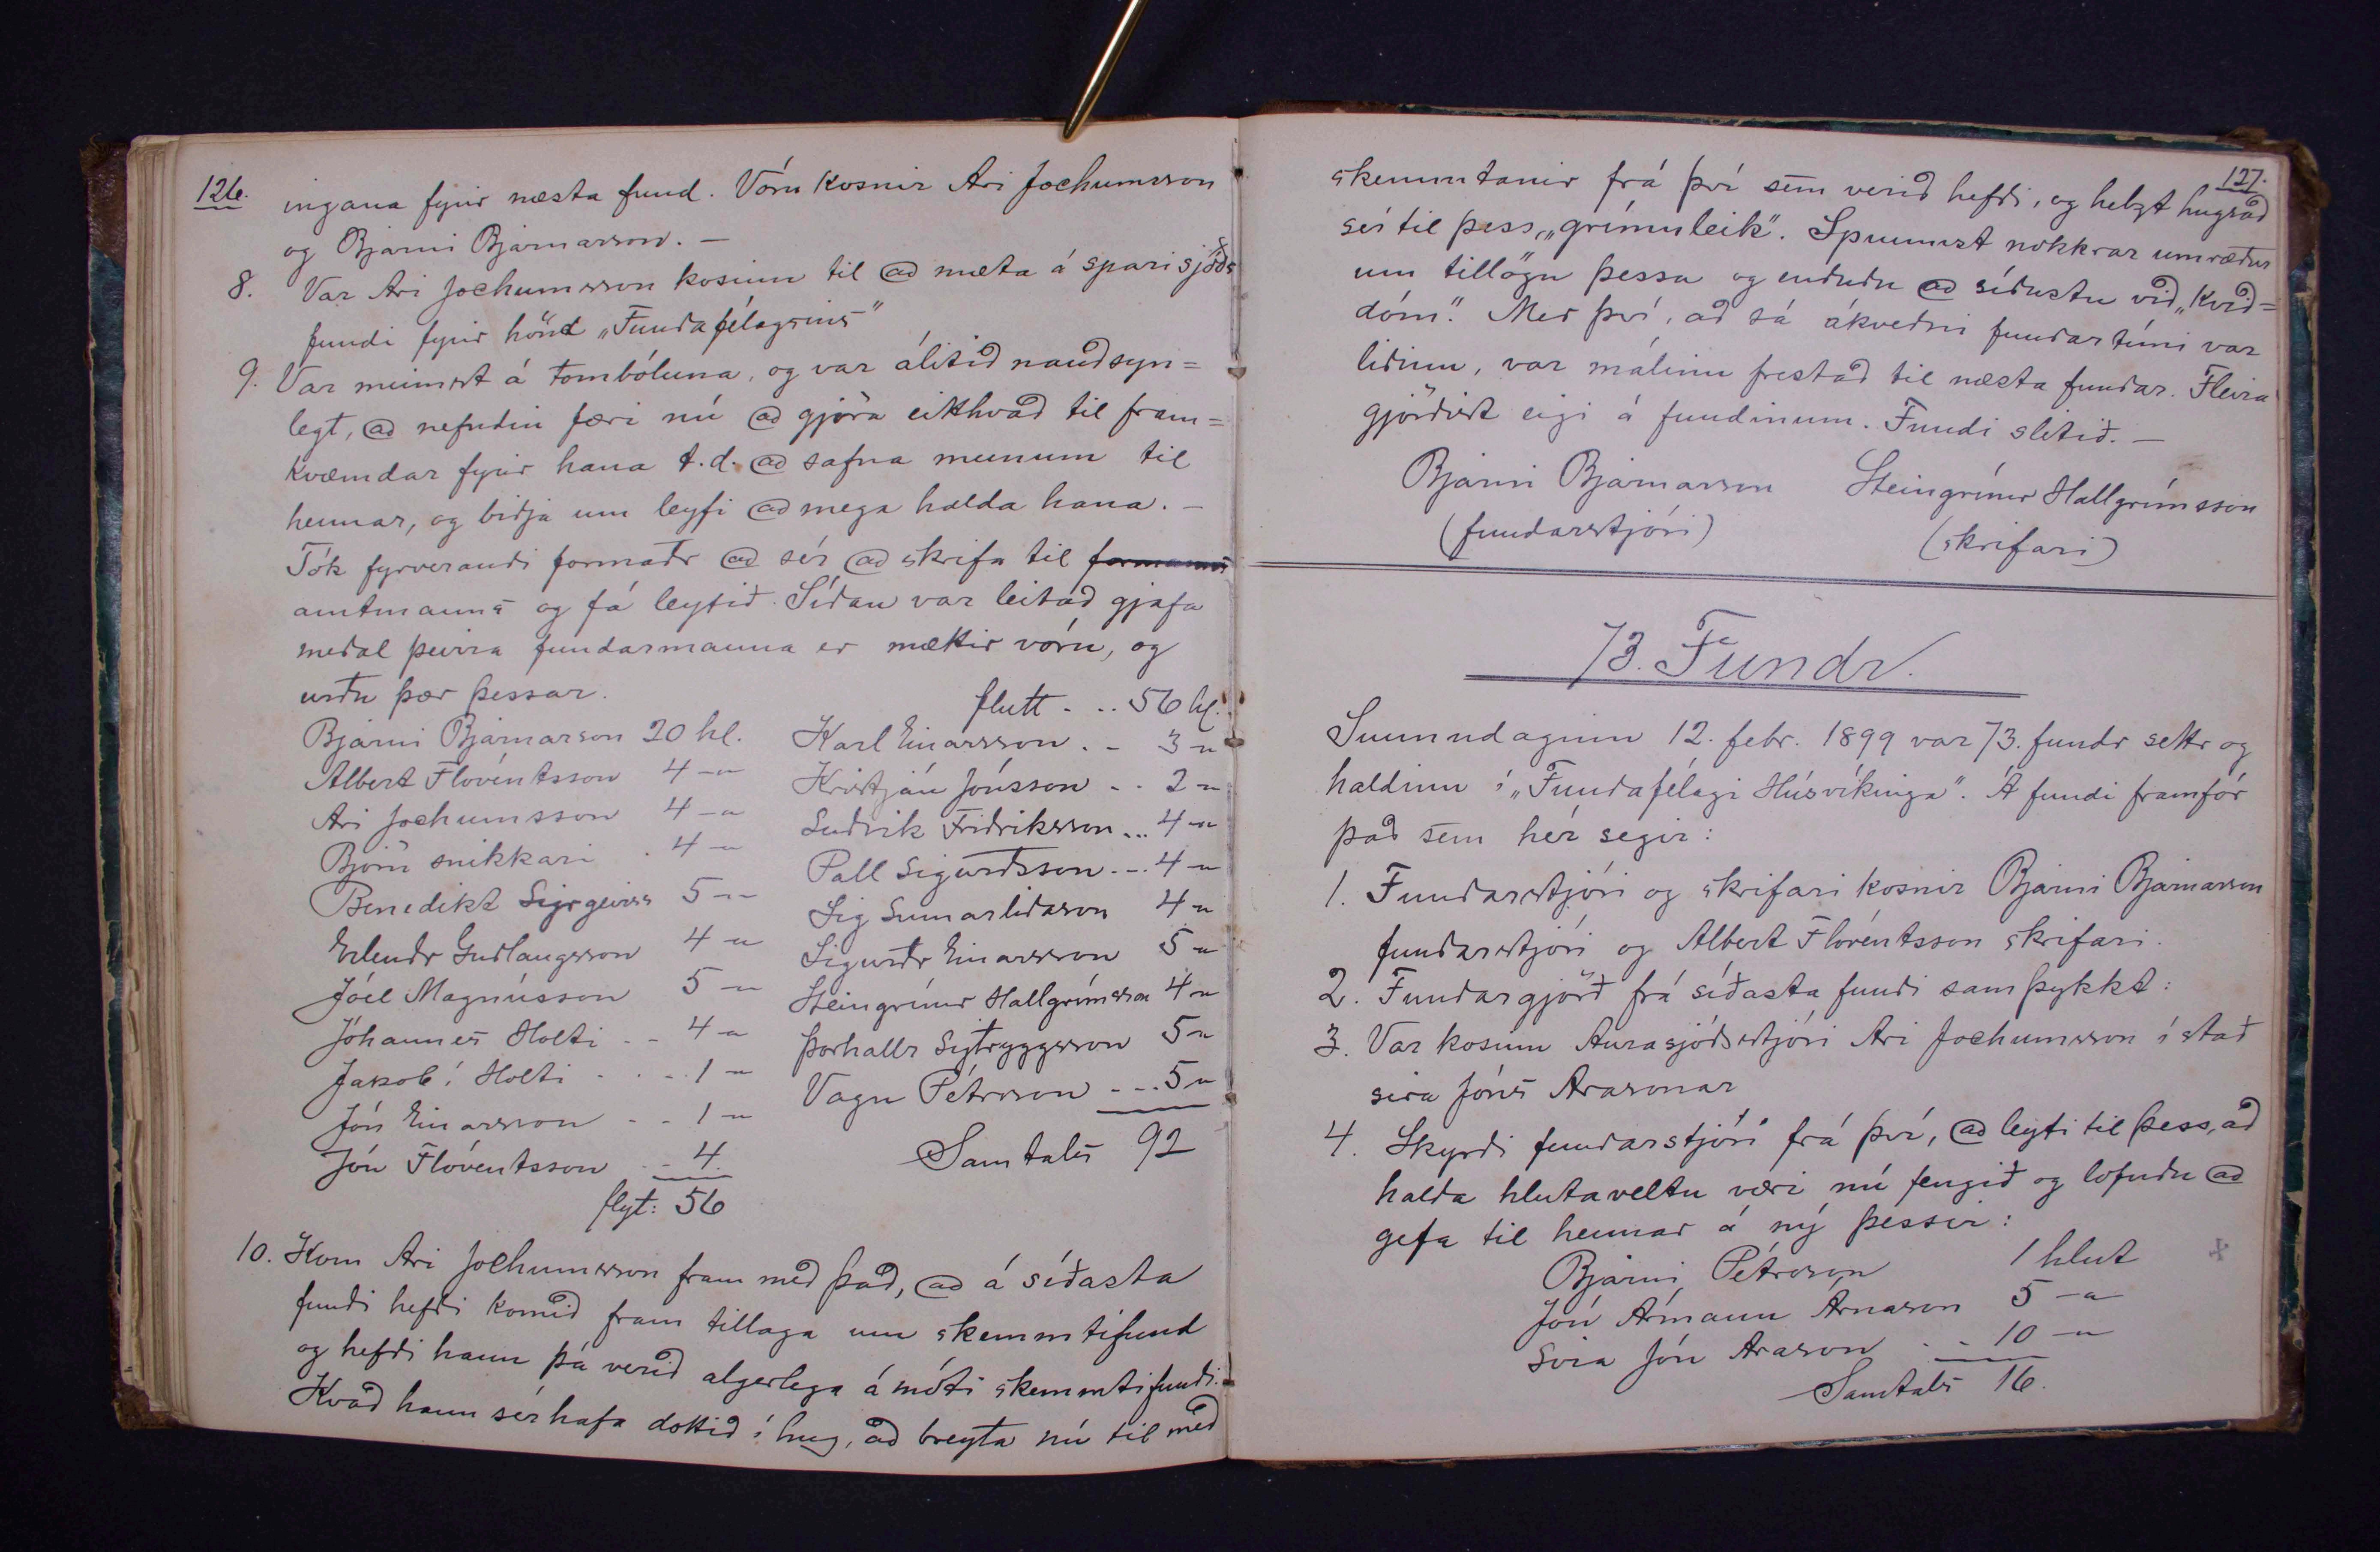 126.
ingana fyrir næsta fund. Vóru kosnir Ari Jochumsson
og Bjarni Bjarnarson. —
8. Var Ari Jochumsson kosinn til að mæta á sparisjóðs
fundi fyrir hönd „Fundafélagsins"
9. Var minnst á tombóluna, og var álitið nauðsyn=
legt, að nefndin færi nú að gjöra eikhvað til fram=
kvæmdar fyrir hana t.d. að safna munum til
hennar, og biðja um leyfi að mega halda hana. —
Tók fyrverandi formaðr að sér að skrifa til formanns
amtmanns og fá leyfið. Síðan var leitað gjafa
meðal þeirra fundarmanna er mættir vóru, og
urðu þær þessar.
Bjarni Bjarnarson 20 hl.
Albert Flovéntsson 4 —"
Ari Jochumsson 4 —"
Björn snikkari . 4 —"
Benedikt Sigrgeirss 5 —"
Erlendr Guðlaugsson 4 —"
Jóel Magnússon 5 —"
Jóhannes Holti - - 4 —"
Jakob í Holti - - - 1 —"
Jón Einarsson - - 1 —"
Jón Flóventsson - - 4
flyt: 56
flutt - .. 56 hl.
Karl Einarsson . - 3 —"
Kristján Jónsson - . 2 —"
Luðvik Friðriksson ... 4 —"
Pall Sigurðsson . - . 4 —"
Sig Sumarliðason 4 —"
Sigurðr Einarsson 5 —"
Steingrímr Hallgrímsson 4 —"
Þorhallr Sigtryggsson 5 —"
Vagn Pétrsson - - . 5 —"
Samtals 92
10. Kom Ari Jochumsson fram með það, að á síðasta
fundi hefði komið fram tillaga um skemmtifund
og hefði hann þá verið algerlega á móti skemmtifundi.
Kvað hann sér hafa dottið í hug, að breyta nú til með
127.
skemmtanir frá því sem verið hefði, og helzt hugsað
sér til þess, „grímuleik". Spunnust nokkrar umræður
um tillögu þessa og enduðu að síðustu við „Kvið=
dóm". Með því, að sá ákveðni fundartími var
liðinn, var málinu frestað til næsta fundar. Fleira
gjörðist eigi á fundinum. Fundi slitið. —
Bjarni Bjarnarson Steingrímr Hallgrímsson
(fundarstjóri) (skrifari)
73. Fundr.
Sunnudaginn 12. febr. 1899 var 73. fundr settr og
haldinn í „Fundafélagi Húsvíkinga". Á fundi framfór
það sem hér segir:
1. Fundarstjóri og skrifari kosnir Bjarni Bjarnarson
fundarstjóri og Albert Flóréntsson skrifari.
2. Fundargjörð frá síðasta fundi samþykkt:
3. Var kosinn Aurasjóðsstjóri Ari Jochumsson í stað
sira Jóns Arasonar
4. Skyrði fundarstjóri frá því, að leyfi til þess, að
halda hlutaveltu væri nú fengið og lofuðu að
gefa til hennar á ný þessir:
Bjarni Pétrsson 1 hlut
Jón Ármann Árnason 5 —"
Sira Jón Arason - - 10 —"
Samtals 16.